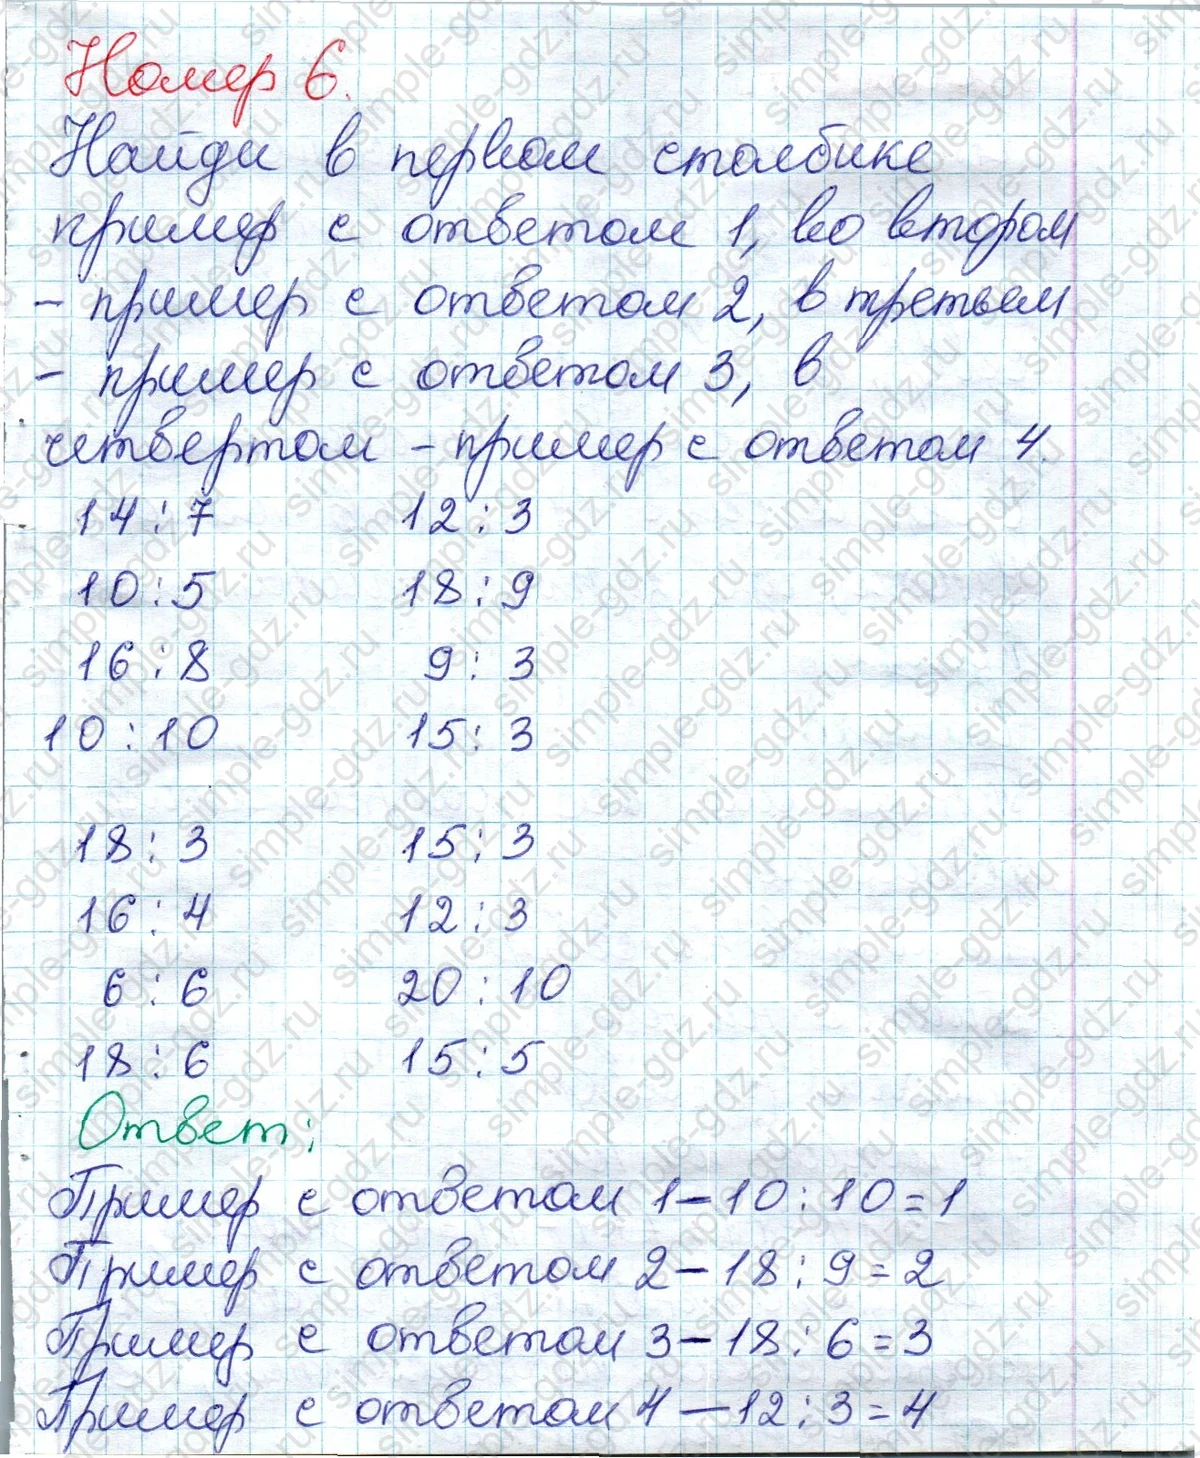 Номер 6.
Найди в первом столбике
пример с ответом 1, во втором
- пример с ответом 2, в третьем
- пример с ответом 3, в
четвертом - пример с ответом 4.
14 : 7 12 : 3
10 : 5 18 : 9
16 : 8 9 : 3
10 : 10 15 : 3
18 : 3 15 : 3
16 : 4 12 : 3
6 : 6 20 : 10
18 : 6 15 : 5
Ответ:
Пример с ответом 1 - 10 : 10 = 1
Пример с ответом 2 - 18 : 9 = 2
Пример с ответом 3 - 18 : 6 = 3
Пример с ответом 4 - 12 : 3 = 4
simple-gdz.ru